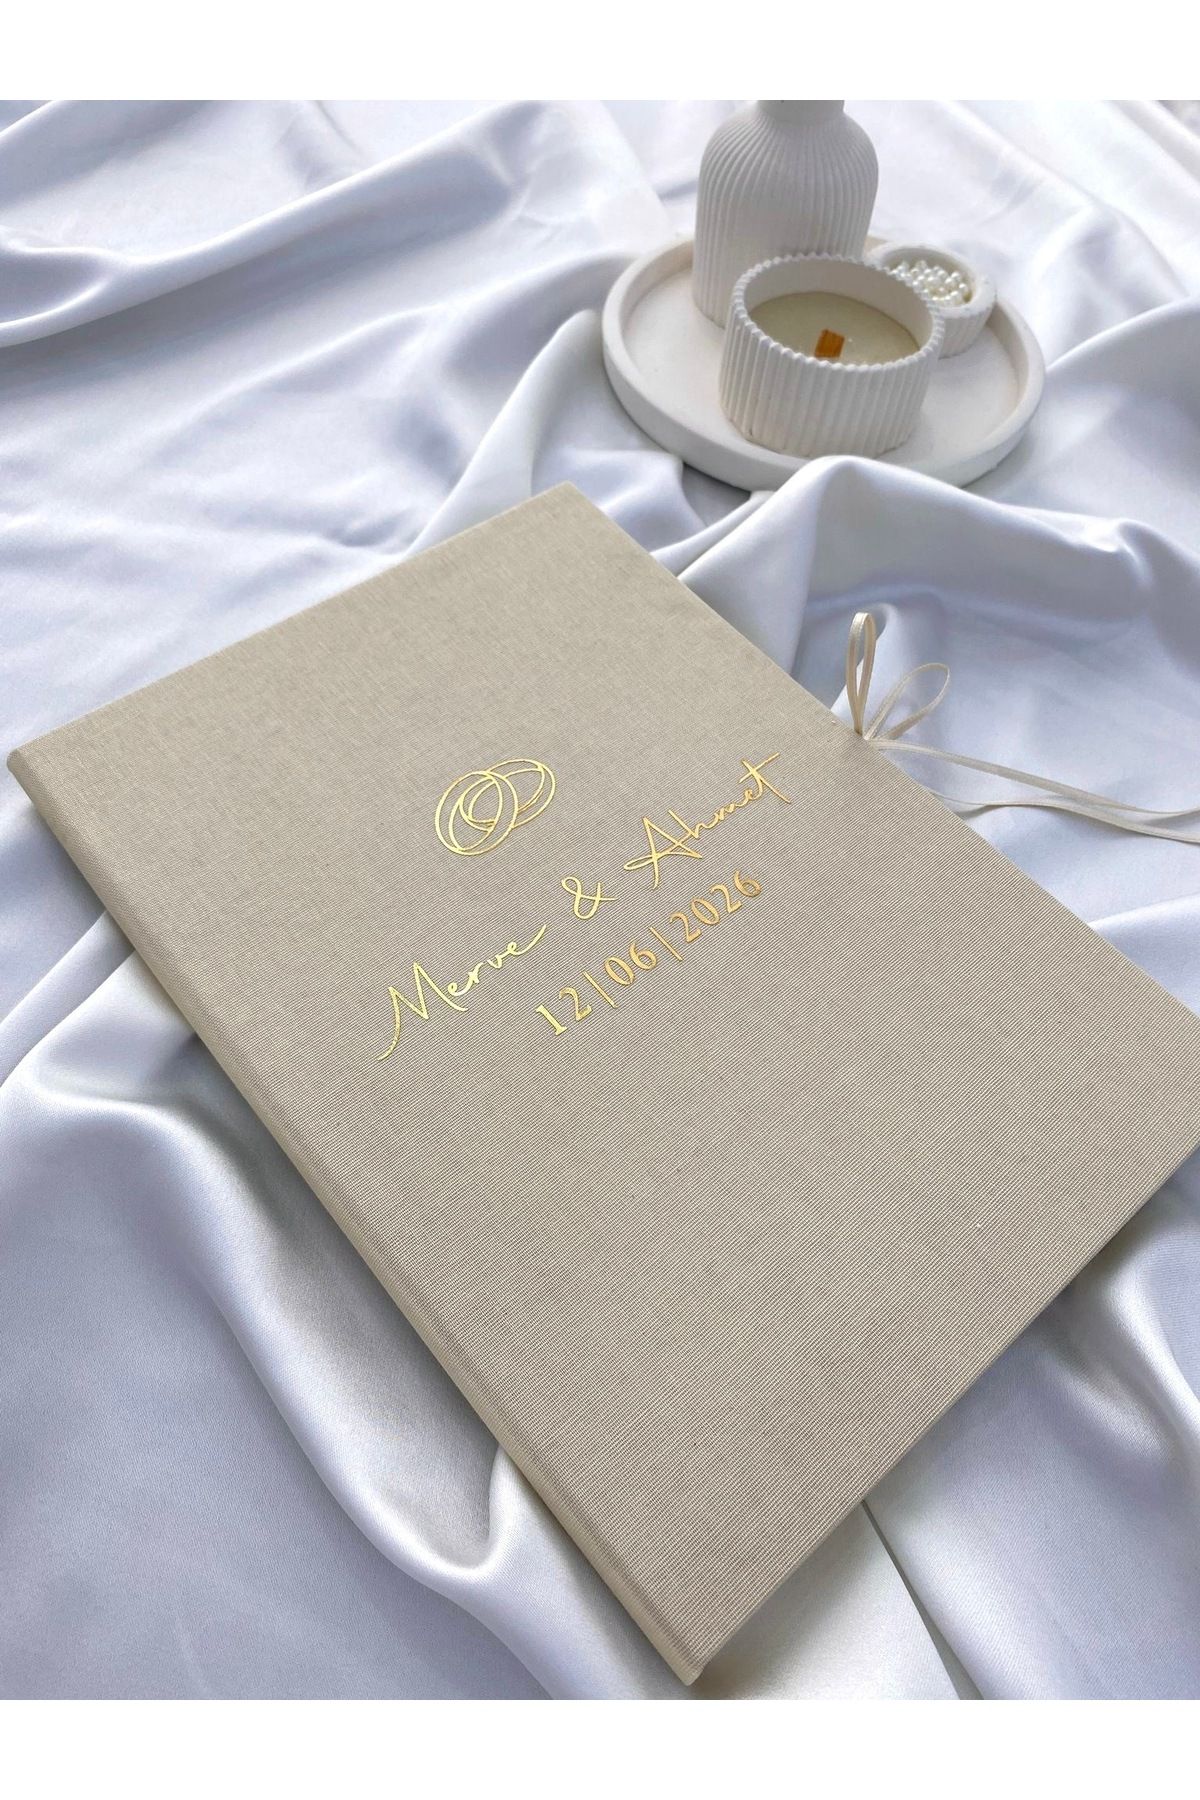 Merve & Ahmet
12|06|2026